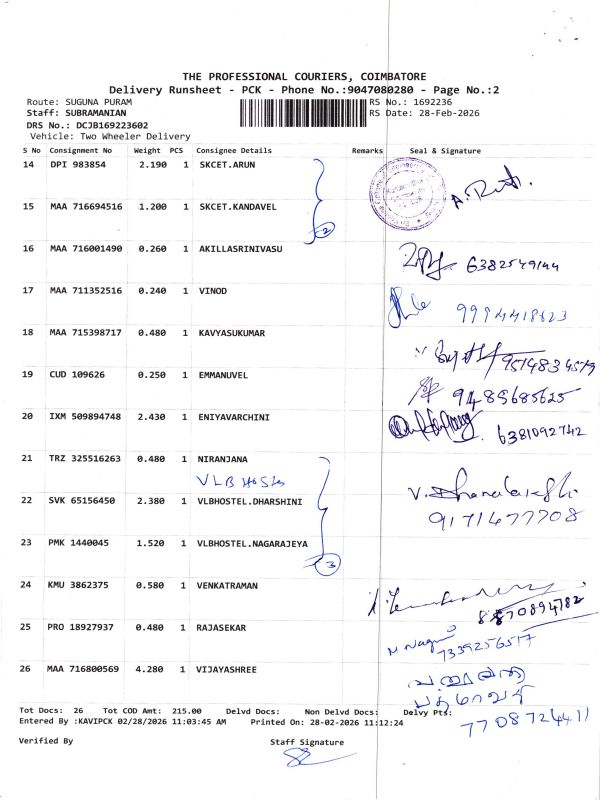 THE PROFESSIONAL COURIERS, COIMBATORE
Delivery Runsheet - PCK - Phone No.:9047080280 - Page No.:2
Route: SUGUNA PURAM RS No.: 1692236
Staff: SUBRAMANIAN RS Date: 28-Feb-2026
DRS No.: DCJB169223602
Vehicle: Two Wheeler Delivery
S No Consignment No Weight PCS Consignee Details Remarks Seal & Signature
14 DPI 983854 2.190 1 SKCET.ARUN
15 MAA 716694516 1.200 1 SKCET.KANDAVEL
2
16 MAA 716001490 0.260 1 AKILLASRINIVASU 6382549144
17 MAA 711352516 0.240 1 VINOD 9994418623
18 MAA 715398717 0.480 1 KAVYASUKUMAR 9514834579
19 CUD 109626 0.250 1 EMMANUVEL 9488685625
20 IXM 509894748 2.430 1 ENIYAVARCHINI 6381092742
21 TRZ 325516263 0.480 1 NIRANJANA
VLB Hostel
22 SVK 65156450 2.380 1 VLBHOSTEL.DHARSHINI 9171477708
23 PMK 1440045 1.520 1 VLBHOSTEL.NAGARAJEYA
3
24 KMU 3862375 0.580 1 VENKATRAMAN 8870894782
25 PRO 18927937 0.480 1 RAJASEKAR 7339256517
26 MAA 716800569 4.280 1 VIJAYASHREE
Tot Docs: 26 Tot COD Amt: 215.00 Delvd Docs: Non Delvd Docs: Delvy Pts:
Entered By :KAVIPCK 02/28/2026 11:03:45 AM Printed On: 28-02-2026 11:12:24
7708724411
Verified By Staff Signature